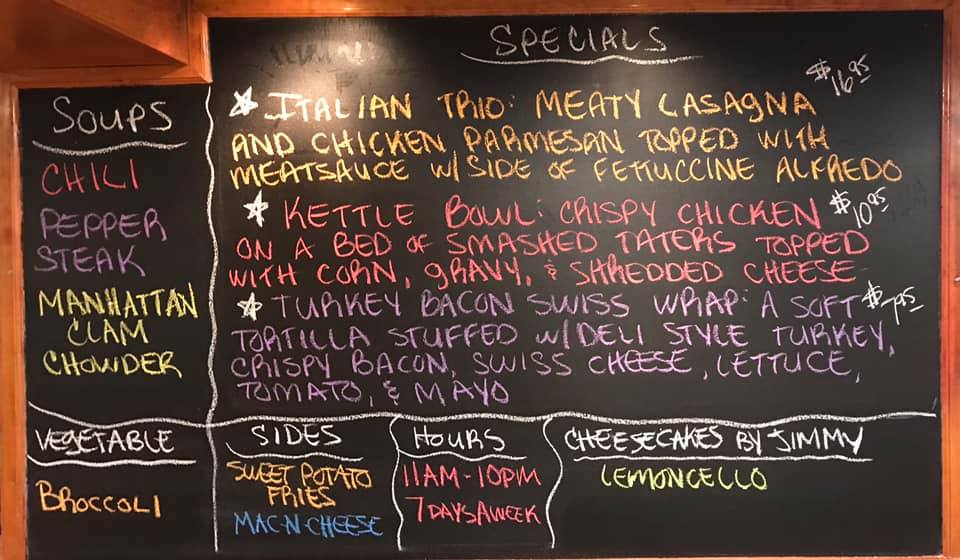 SPECIALS
SOUPS
CHILI
PEPPER
STEAK
MANHATTAN
CLAM
CHOWDER
★ ITALIAN TRIO: MEATY LASAGNA $16.95
AND CHICKEN PARMESAN TOPPED WITH
MEATSAUCE W/ SIDE OF FETTUCCINE ALFREDO
★ KETTLE BOWL: CRISPY CHICKEN $10.95
ON A BED OF SMASHED TATERS TOPPED
WITH CORN, GRAVY, & SHREDDED CHEESE
★ TURKEY BACON SWISS WRAP: A SOFT $7.95
TORTILLA STUFFED W/ DELI STYLE TURKEY,
CRISPY BACON, SWISS CHEESE, LETTUCE,
TOMATO, & MAYO
VEGETABLE
BROCCOLI
SIDES
SWEET POTATO
FRIES
MAC-N-CHEESE
HOURS
11AM-10PM
7 DAYS A WEEK
CHEESECAKES BY JIMMY
LEMONCELLO